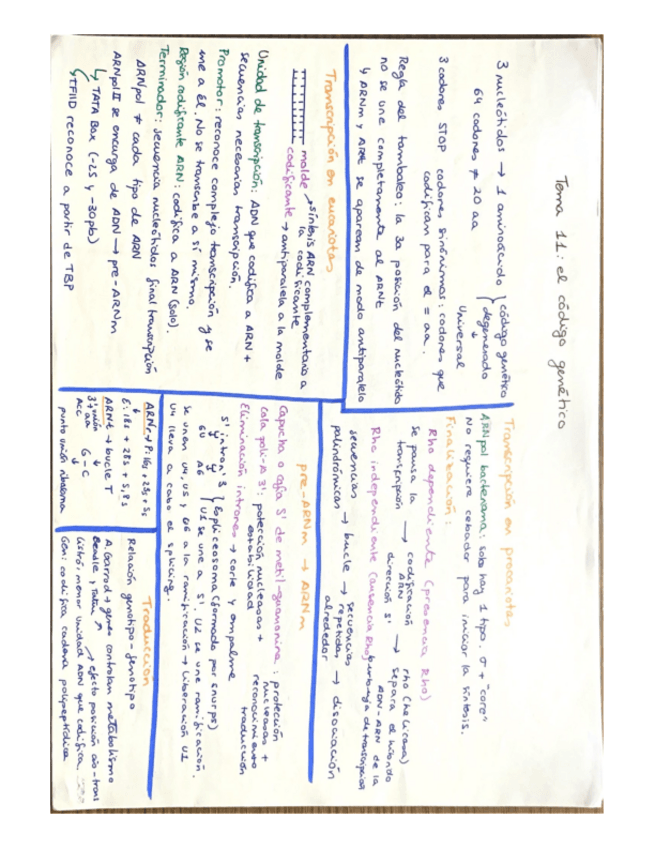 Tema 11: el código genético
3 nucleótidos → 1 aminoácido
64 codones ≠ 20 aa
código genético
degenerado
↓
Universal
3 codones STOP
codones sinónimos: codones que
codifican para el = aa.
Regla del tambaleo: la 3a posición del nucleótido
no se une completamente al ARNt
y ARNm y ARNt se aparean de modo antiparalelo
Transcripción en eucariotas
molde → síntesis ARN complementario a
la codificante
codificante → antiparalela a la molde
Unidad de transcripción: ADN que codifica a ARN +
secuencias necesarias transcripción.
Promotor: reconoce complejo transcripción y se
une a él. No se transcribe a sí mismo.
Región codificante ARN: codifica a ARN (solo).
Terminador: secuencia nucleótidos final transcripción
ARNpol ≠ cada tipo de ARN
ARNpol II se encarga de ADN → pre-ARNm
↳ TATA Box (-25 y -30pb)
↳ TFIID reconoce a partir de TBP
Transcripción en procariotas
ARNpol bacteriana: solo hay 1 tipo. σ + "core"
No requiere cebador para iniciar la síntesis.
Finalización:
Rho dependiente (presencia Rho)
se pausa la
transcripción
→ codificación
ARN
dirección 5'
→ rho (helicasa)
separa el híbrido
ADN-ARN de la
burbuja de transcripción
Rho independiente (ausencia Rho)
secuencias
palindrómicas → bucle → secuencias
repetidas
alrededor
→ disociación
pre-ARNm → ARNm
Capucha o cofia 5' de metil-guanosina: protección
nucleasas +
reconocimiento
traducción
Cola poli-A 3': protección nucleasas +
estabilidad
Eliminación intrones → corte y empalme
5' intrón 3'
GU AG
Espliceosoma (formado por snurps)
U1 se une a 5', U2 se une ramificación.
se unen U4, U5 y U6 a la ramificación → liberación U1
U4 lleva a cabo el splicing.
ARNr → P: 16s, 23s + 5s
E: 18s + 28s + 5,8s
ARNt → bucle T
3' unión
+ aa
ACC
G-C
↓
punto unión ribosoma
Traducción
Relación genotipo-fenotipo
A. Garrod → genes controlan metabolismo
Beadle y Tatum ↗
→ efecto posición cis-trans
Cistrón, menor unidad ADN que codifica
Gen: codifica cadena polipeptídica